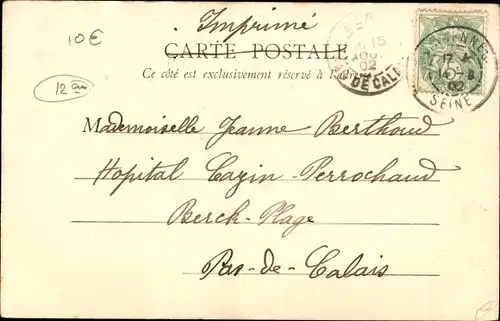 10€
Imprimé
CARTE POSTALE
Ce côté est exclusivement réservé à l'adresse
12
15
AOU
02
DE CALAIS
17
14-8
02
SEINE
Mademoiselle Jeanne Berthoud
Hopital Cazin-Perrochaud
Berck-Plage
Pas-de-Calais